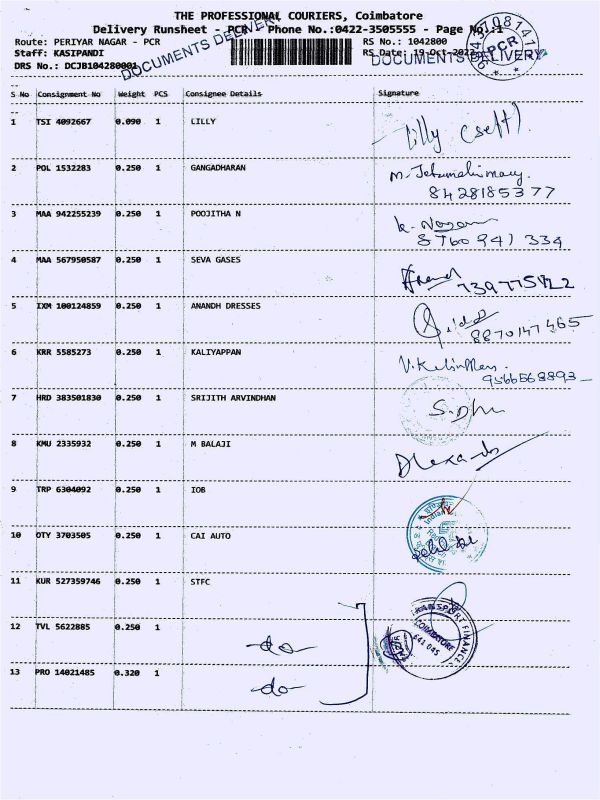 THE PROFESSIONAL COURIERS, Coimbatore
Delivery Runsheet - PCR - Phone No.:0422-3505555 - Page No.:1
Route: PERIYAR NAGAR - PCR RS No.: 1042800
Staff: KASIPANDI RS Date: 19-Oct-2023
DRS No.: DCJB104280001
DOCUMENTS DELIVERY
DOCUMENTS DELIVERY
PCR
S No Consignment No Weight PCS Consignee Details Signature
1 TSI 4092667 0.090 1 LILLY Lilly (self)
2 POL 1532283 0.250 1 GANGADHARAN
8428185377
3 MAA 942255239 0.250 1 POOJITHA N
8760941334
4 MAA 567950587 0.250 1 SEVA GASES Anand
5 IXM 100124859 0.250 1 ANANDH DRESSES
8870147465
6 KRR 5585273 0.250 1 KALIYAPPAN
9566568893
7 HRD 383501830 0.250 1 SRIJITH ARVINDHAN
8 KMU 2335932 0.250 1 M BALAJI
9 TRP 6304092 0.250 1 IOB
10 OTY 3703505 0.250 1 CAI AUTO
11 KUR 527359746 0.250 1 STFC
12 TVL 5622885 0.250 1 -do-
13 PRO 14021485 0.320 1 -do-
TRANSPORT FINANCE
COIMBATORE
641 045